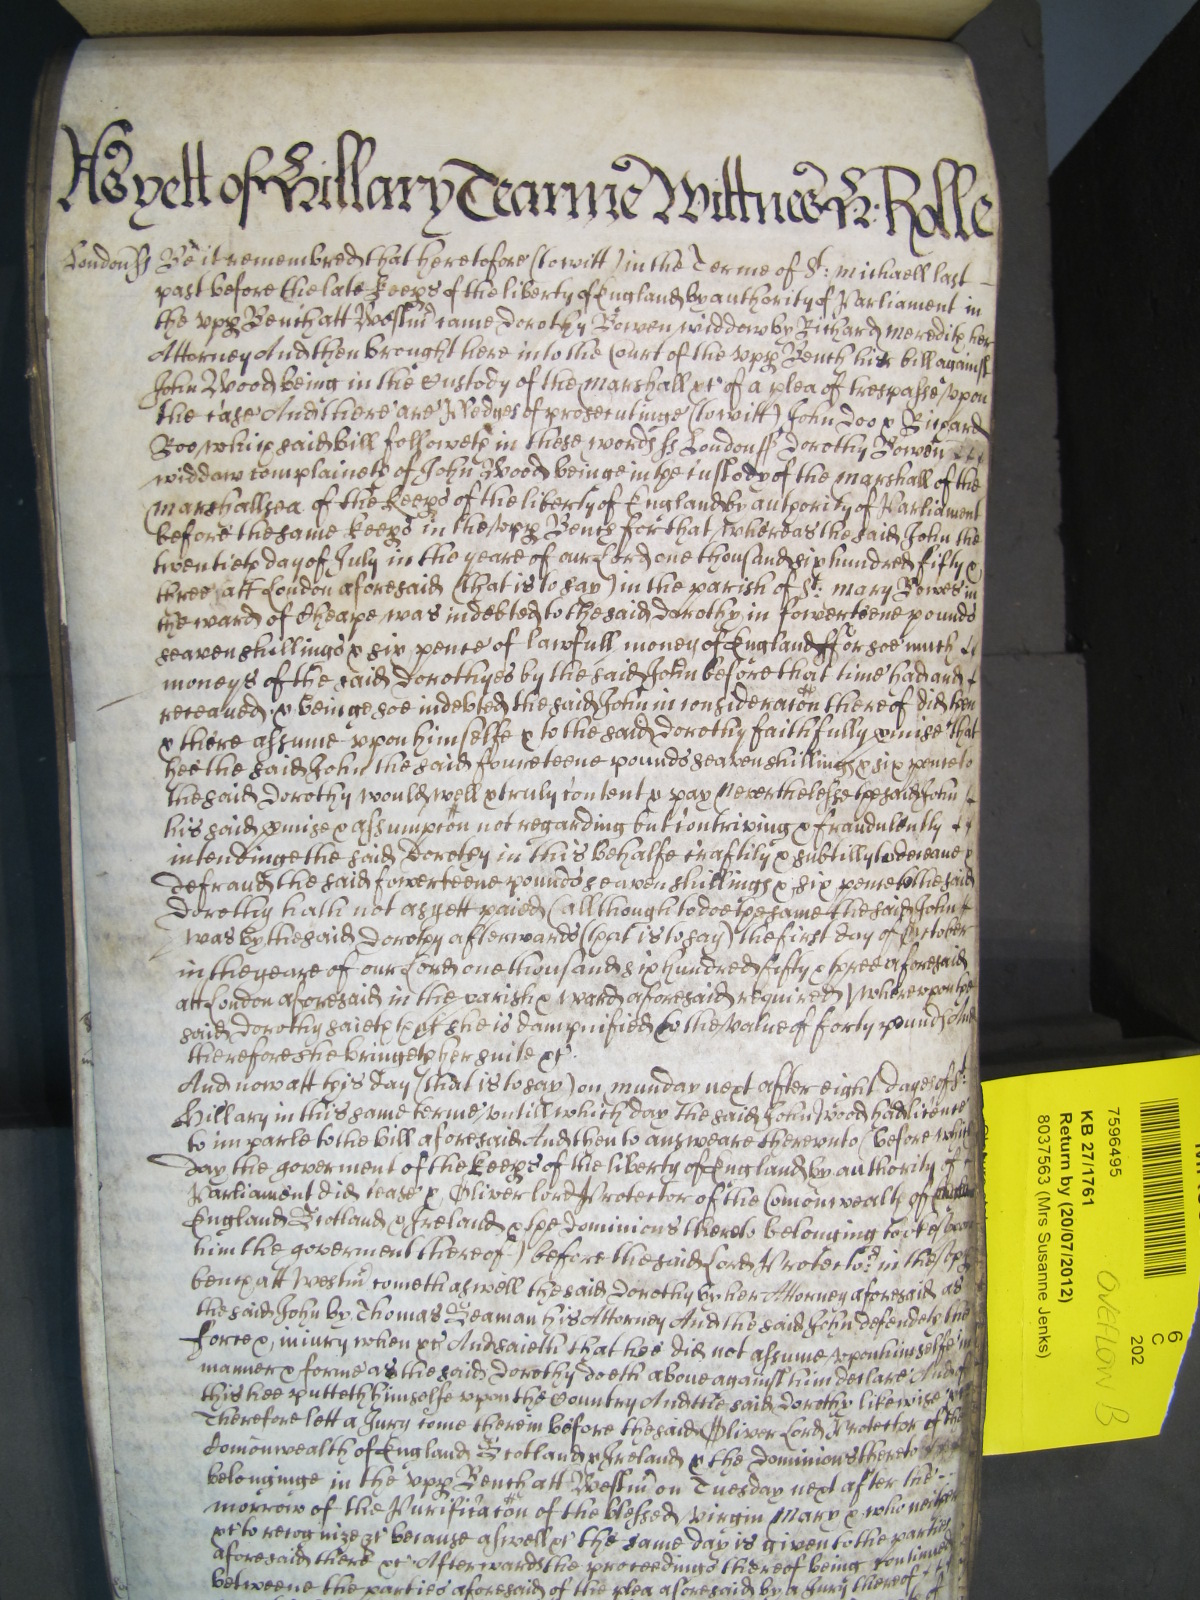 As yett of Hillary Tearme Wittnes H: Rolle
London ss Be it remembred that heretofore (to witt) in the Terme of St: Michaell last
past before the late keeps of the liberty of England by authority of Parliament in
the upp Bench att Westm came Dorothy Bowen widdow by Richard Meredith her
Attorney And then brought here into the Court of the upp Bench her bill against
John Wood being in the Custody of the Marshall &c of a plea of trespasse upon
the case And there are Pledges of prosecutinge (to witt) John Doo & Richard
Roo which said bill followeth in these words ss London ss Dorothy Bowen
widdow complaineth of John Wood beinge in the custody of the Marshall of the
Marshallsea of the keeps of the liberty of England by authority of Parliament
before the same keeps in the upp Bench for that whereas the said John the
twentieth day of July in the yeare of our Lord one thousand six hundred fifty &
three att London aforesaid (that is to say) in the parish of St: Mary Bowes in
the ward of Cheape was indebted to the said Dorothy in fowerteene pounds
seaven shillings & six pence of lawfull money of England ffor soe much
moneys of the said Dorothyes by the said John before that time had and
receaved & beinge soe indebted the said John in consideracon thereof did then
& there assume upon himselfe & to the said Dorothy faithfully pmise that
hee the said John the said foureteene pounds seaven shillings & six pence to
the said Dorothy would well & truly content & pay Neverthelesse the said John
his said pmise & assumpcon not regarding but contriving & fraudulently
intendinge the said Dorothy in this behalfe craftily & subtilly to deceave &
defraud the said fowerteene pounds seaven shillings & six pence to the said
Dorothy hath not as yett paied (allthough to doe the same the said John
was by the said Dorothy afterwards (that is to say) the first day of October
in the yeare of our Lord one thousand six hundred fifty & three aforesaid
att London aforesaid in the parish & ward aforesaid required) whereupon the
said Dorothy saieth that she is dampnified to the value of forty pounds And
therefore she bringeth her suite &c.
And now att this day (that is to say) on munday next after eight dayes of St:
Hillary in this same terme untill which day the said John Wood had licence
to imparle to the bill aforesaid And then to answeare thereunto (before which
day the goverment of the keeps of the liberty of England by authority of
Parliament did cease & Oliver lord Protector of the Comonwealth of
England Scotland & Ireland & the dominions thereto belonging tooke upon
him the goverment thereof) before the said Lord Protector in the upp
bench att Westm cometh aswell the said Dorothy by her Attorney aforesaid as
the said John by Thomas Seaman his Attorney And the said John defendeth the
force & injury when &c And saieth that hee did not assume upon himselfe in
manner & forme as the said Dorothy doeth above against him declare And of
this hee putteth himselfe upon the Country And the said Dorothy likewise &c
Therefore lett a Jury come therein before the said Oliver Lord Protector of the
Comonwealth of England Scotland & Ireland & the dominions thereto
belonginge in the upp Bench att Westm on Tuesday next after the
morrow of the Purificacon of the blessed Virgin Mary & who neither
&c to recognize &c because aswell &c the same day is given to the parties
aforesaid there &c Afterwards the proceedings thereof being continued
betweene the parties aforesaid of the plea aforesaid by a Jury thereof
6
C
202
OVEFLOW B
7596495
KB 27/1761
Return by (20/07/2012)
8037563 (Mrs Susanne Jenks)